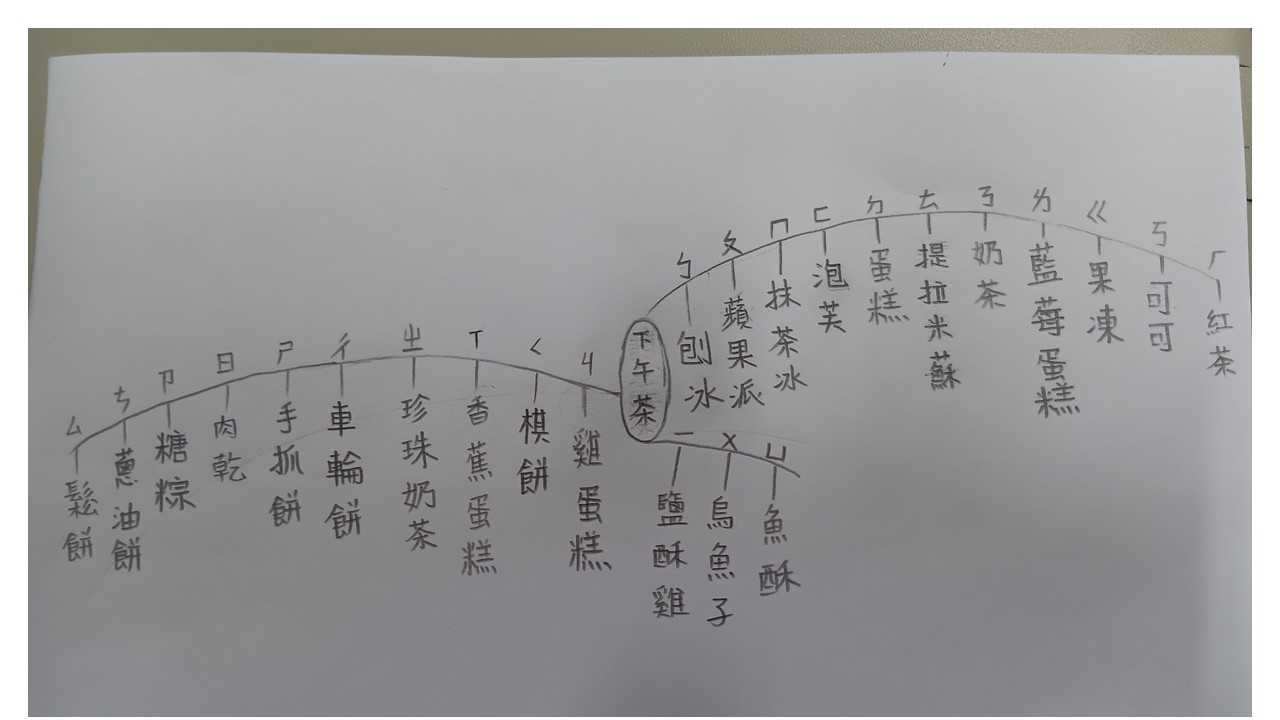 下午茶
ㄅ
刨冰
ㄆ
蘋果派
ㄇ
抹茶冰
ㄈ
泡芙
ㄉ
蛋糕
ㄊ
提拉米蘇
ㄋ
奶茶
ㄌ
藍莓蛋糕
ㄍ
果凍
ㄎ
可可
ㄏ
紅茶
ㄐ
雞蛋糕
ㄑ
棋餅
ㄒ
香蕉蛋糕
ㄓ
珍珠奶茶
ㄔ
車輪餅
ㄕ
手抓餅
ㄖ
肉乾
ㄗ
糖粽
ㄘ
蔥油餅
ㄙ
鬆餅
ㄧ
鹽酥雞
ㄨ
烏魚子
ㄩ
魚酥